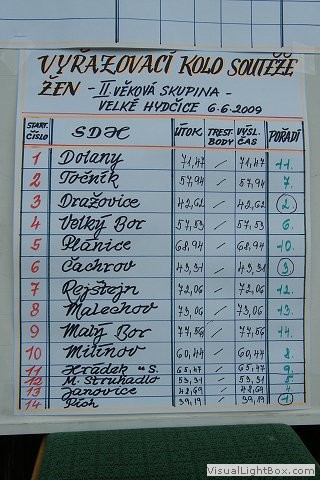 VYŘAZOVACÍ KOLO SOUTĚŽE
ŽEN - II. VĚKOVÁ SKUPINA -
VELKÉ HYDČICE 6.6.2009
START. ČÍSLO SDH ÚTOK TREST. BODY VÝSL. ČAS POŘADÍ
1 Dolany 71,47 / 71,47 11.
2 Točník 57,94 / 57,94 7.
3 Dražovice 42,62 / 42,62 2.
4 Velký Bor 57,53 / 57,53 6.
5 Plánice 68,94 / 68,94 10.
6 Čachrov 43,31 / 43,31 3.
7 Pejštejn 72,06 / 72,06 12.
8 Malechov 73,06 / 73,06 13.
9 Malý Bor 77,56 / 77,56 14.
10 Milínov 60,44 / 60,44 8.
11 Hrádek u S. 65,47 / 65,47 9.
12 M. Struhadlo 53,31 / 53,31 5.
13 Janovice 42,69 / 42,69 4.
14 Pích 39,19 / 39,19 1.
www.VisualLightBox.com